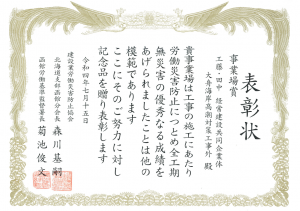 表彰状
事業場賞
工藤・田中 経常建設共同企業体
大舟海岸高潮対策工事外 殿
貴事業場は工事の施工にあたり
労働災害防止につとめ全工期
無災害の優秀なる成績を
あげられましたことは他の
模範であります
ここにそのご努力に対し
記念品を贈り表彰します
令和四年七月十五日
建設業労働災害防止協会
北海道支部函館分会長 森川基嗣
函館労働基準監督署長 菊池俊文